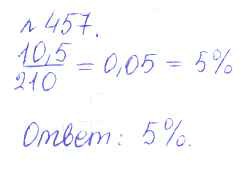 №457.
10,5
210 = 0,05 = 5%
Ответ: 5%.